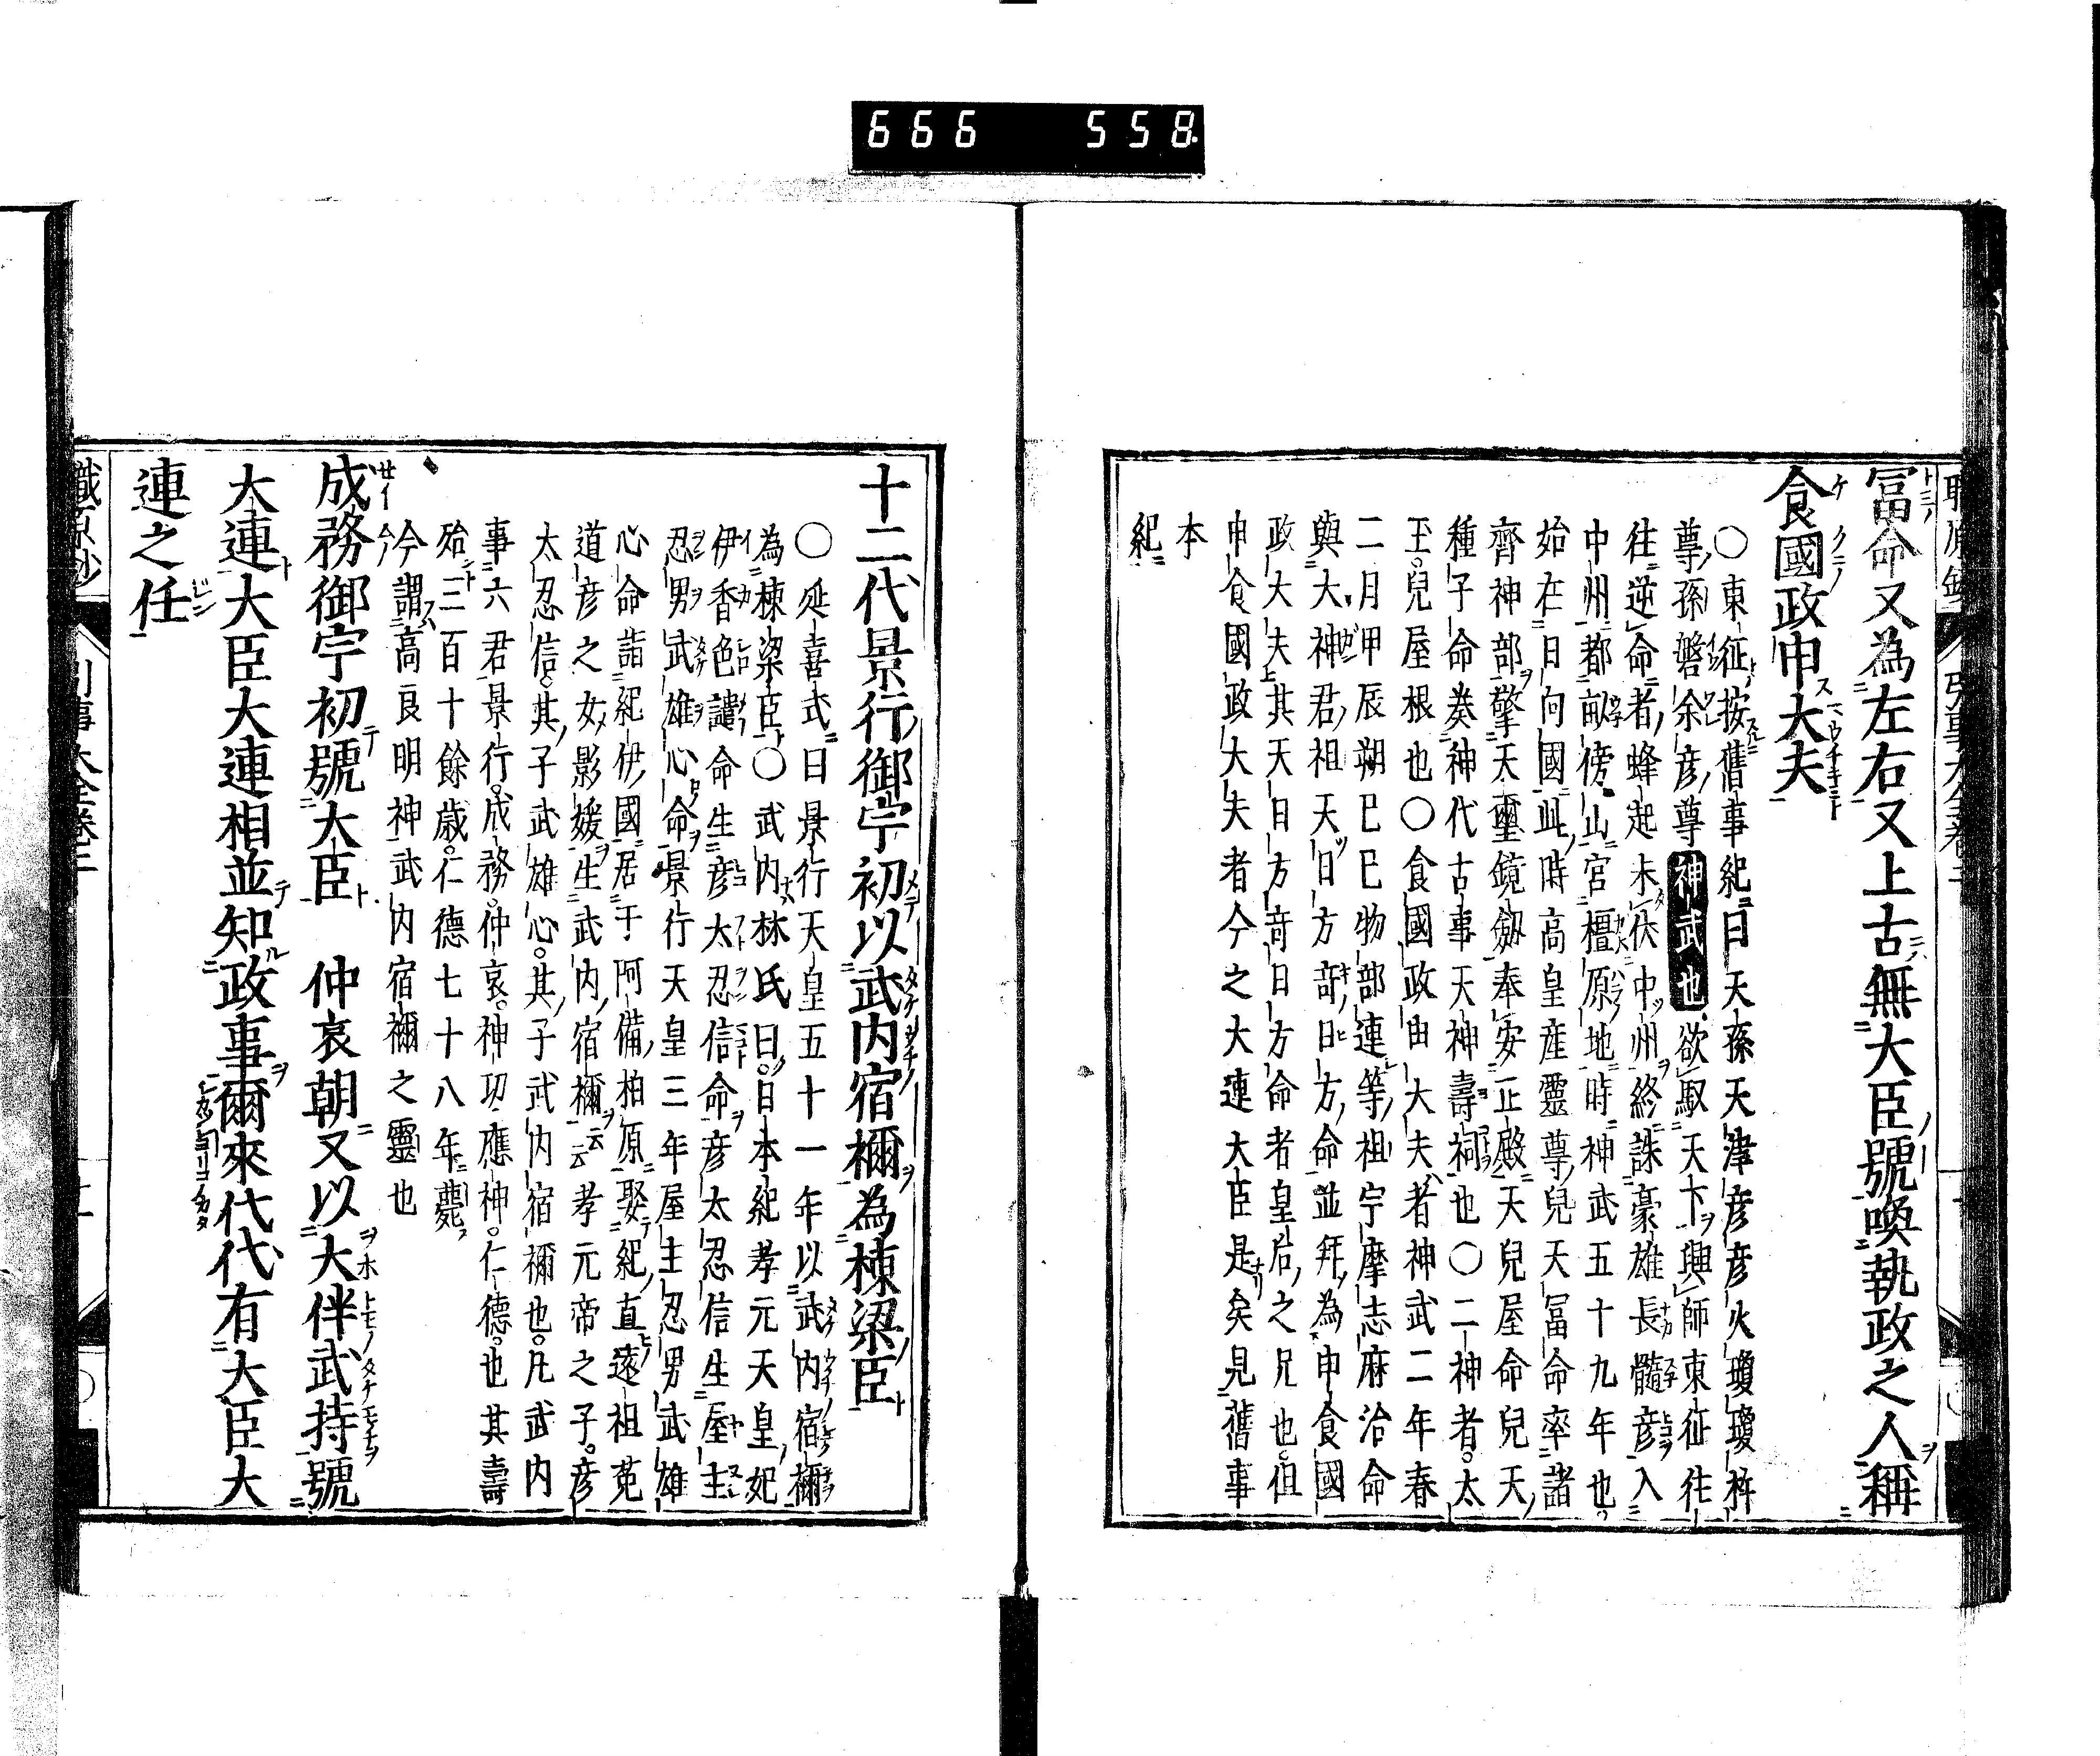 666 558
冨命又為左右又上古無大臣號喚執政之人稱
食國政申大夫
○東征按舊事紀曰天孫天津彦彦火瓊瓊杵
尊孫磐余彦尊神武也欲馭天下興師東征往
往逆命者蜂起未伏中州終誅豪雄長髓彦入
中州都畝傍山宮檀原地時神武五十九年也
始在日向國此時高皇産靈尊兒天冨命率諸
齊神部擎天璽鏡劔奉安正殿天兒屋命兒天
種子命奏神代古事天神壽祠也○二神者太
玉兒屋根也○食國政申大夫者神武二年春
二月甲辰朔巳巳物部連等祖宇摩志麻治命
與大神君祖天日方竒日方命並拜為申食國
政大夫其天日方竒日方命者皇后之兄也但
申食國政大夫者今之大連大臣是矣見舊事
本
紀
十二代景行御宇初以武内宿禰為棟梁臣
○延喜式曰景行天皇五十一年以武内宿禰
為棟梁臣○武内林氏曰日本紀孝元天皇妃
伊香色謎命生彦太忍信命彦太忍信生屋主
忍男武雄心命景行天皇三年屋主忍男武雄
心命詣紀伊國居于阿備柏原娶紀直遠祖菟
道彦之女影媛生武内宿禰云云孝元帝之子彦
太忍信其子武雄心其子武内宿禰也凡武内
事六君景行成務仲哀神功應神仁德也其壽
殆三百十餘歳仁德七十八年薨
今謂高良明神武内宿禰之靈也
成務御宇初號大臣 仲哀朝又以大伴武持號
大連大臣大連相並知政事爾來代代有大臣大
連之任